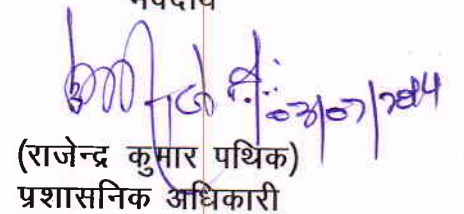 भवदीय
03/07/2014
(राजेन्द्र कुमार पथिक)
प्रशासनिक अधिकारी